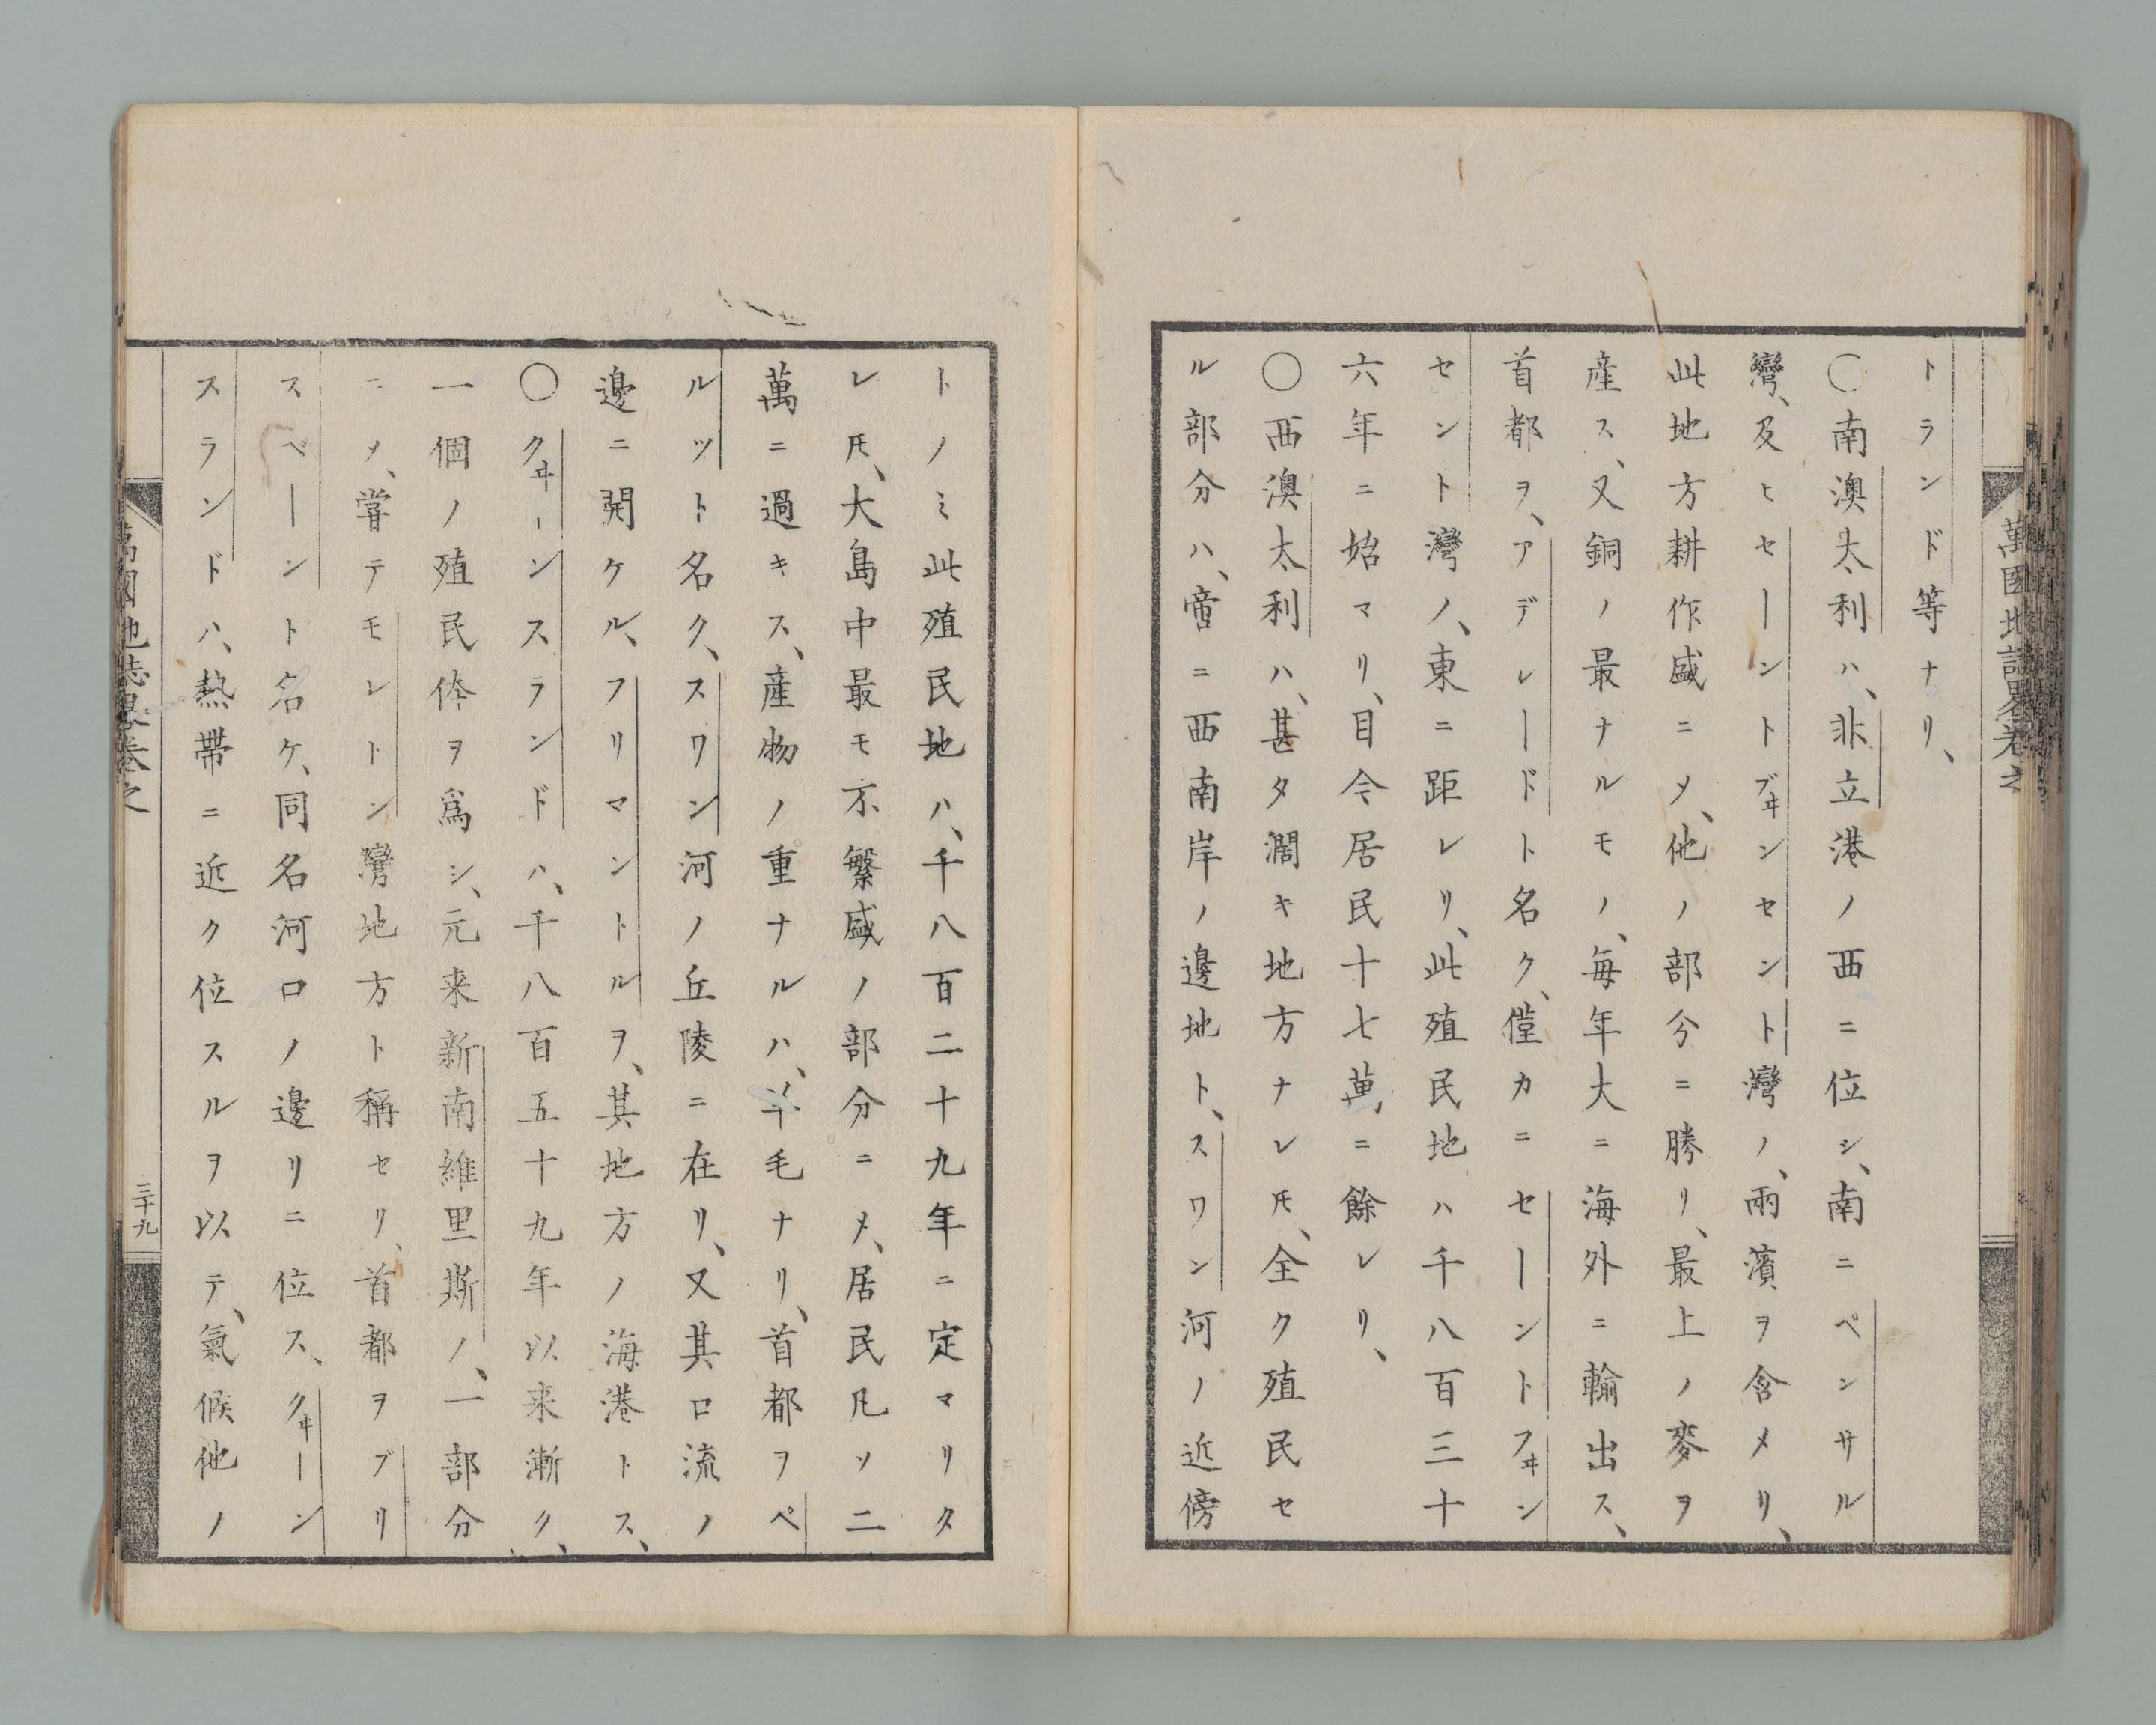 萬國地誌畧卷之
トランド等ナリ、
〇南澳太利ハ、非立港ノ西ニ位シ、南ニペンサル
灣、及ヒセーントブヰンセント灣ノ、兩濱ヲ含メリ、
此地方耕作盛ニメ、他ノ部分ニ勝リ、最上ノ麥ヲ
産ス、又銅ノ最ナルモノ、毎年大ニ海外ニ輸出ス、
首都ヲ、アデレードト名ク、僅カニセーントフヰン
セント灣ノ、東ニ距レリ、此殖民地ハ千八百三十
六年ニ始マリ、目今居民十七萬ニ餘レリ、
〇西澳太利ハ、甚タ濶キ地方ナレ𪜈、全ク殖民セ
ル部分ハ、啻ニ西南岸ノ邊地ト、スワン河ノ近傍
トノミ此殖民地ハ、千八百二十九年ニ定マリタ
レ𪜈、大島中最モ不繁盛ノ部分ニメ、居民凡ソ二
萬ニ過キス、産物ノ重ナルハ、羊毛ナリ、首都ヲペ
ルツト名ク、スワン河ノ丘陵ニ在リ、又其口流ノ
邊ニ開ケル、フリマントルヲ、其地方ノ海港トス、
〇クヰーンスランドハ、千八百五十九年以来漸ク、
一個ノ殖民体ヲ爲シ、元来新南維里斯ノ、一部分
ニメ、甞テモレトン灣地方ト稱セリ、首都ヲブリ
スベーント名ケ、同名河口ノ邊リニ位ス、クヰーン
スランドハ、熱帶ニ近ク位スルヲ以テ、氣候他ノ
萬國地誌畧卷之
三十九